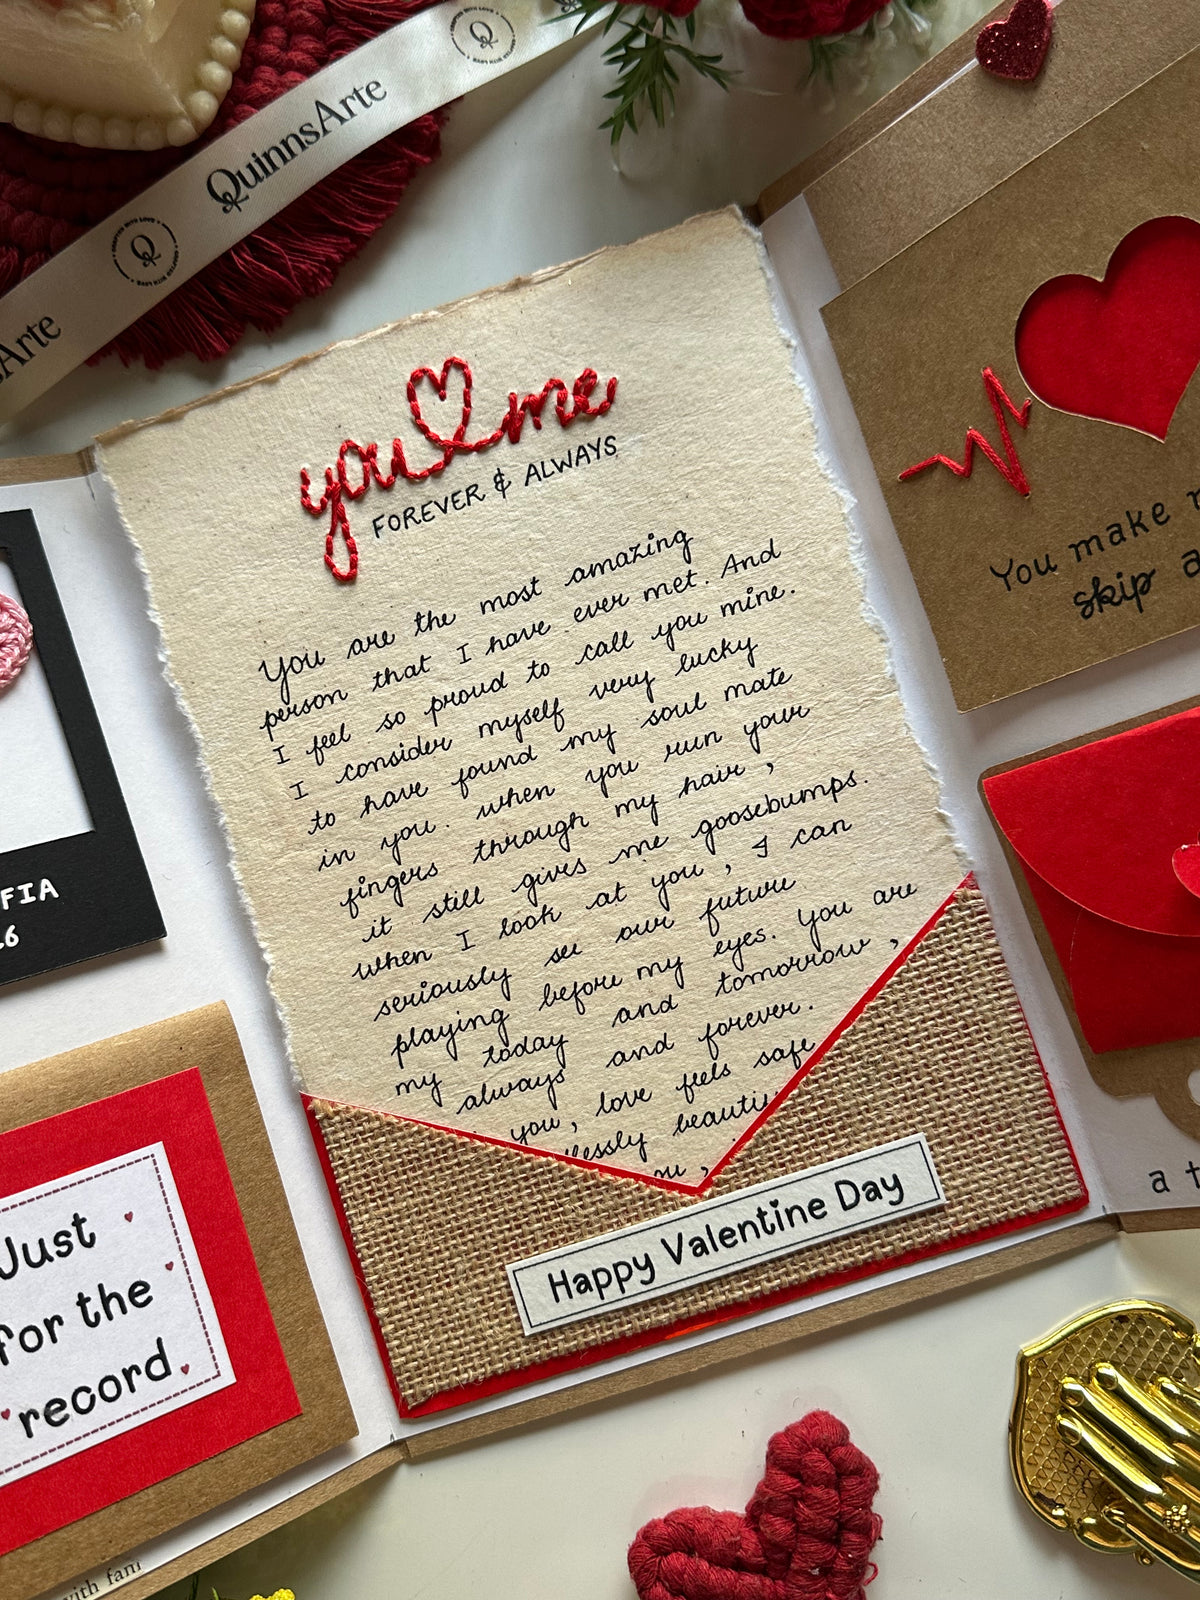 QuinnsArte
Q
Q
Arte
you me
FOREVER & ALWAYS
You are the most amazing
person that I have ever met. And
I feel so proud to call you mine.
I consider myself very lucky
to have found my soul mate
in you. when you run your
fingers through my hair,
it still gives me goosebumps.
when I look at you, I can
seriously see our future
playing before my eyes. You are
my today and tomorrow,
always and forever.
you, love feels safe
beauti
Happy Valentine Day
You make
skip a
a t
FIA
Just
for the
record
with fam